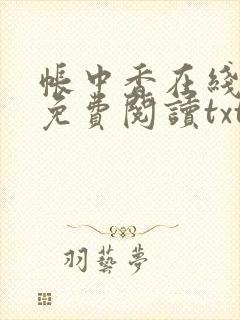 帳中香在綫
免費閱讀txt
羽藝夢